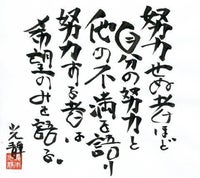 努力せぬ者ほど
自分の努力と
他の不満を語り
努力する者は
希望のみを語る